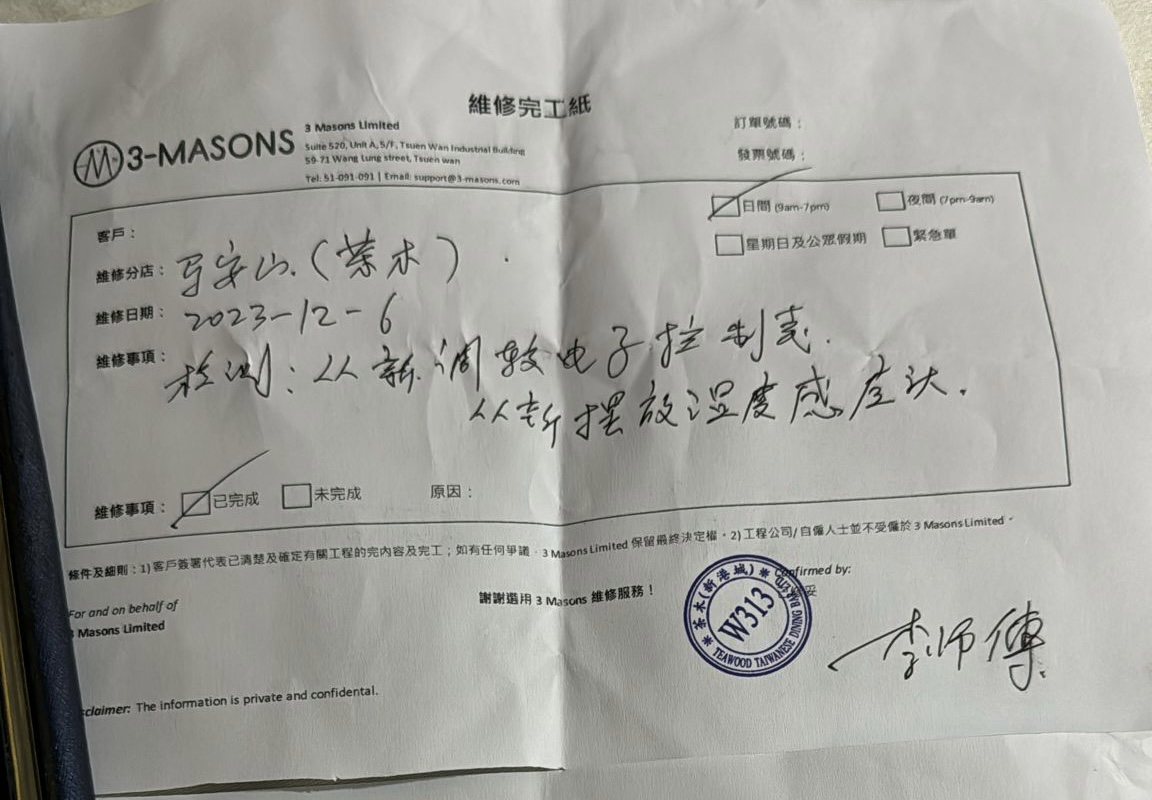 維修完工紙
3-MASONS
3 Masons Limited
Suite 520, Unit A, 5/F, Tsuen Wan Industrial Building
59-71 Wang Lung street, Tsuen wan
Tel: 51-091-091 | Email: support@3-masons.com
訂單號碼：
發票號碼：
客戶：
日間 (9am-7pm)
夜間 (7pm-9am)
星期日及公眾假期
緊急單
維修分店：马安山.(茶木)
維修日期：2023-12-6
維修事項：检测：从新调较电子控制
从新摆放湿度感应头.
維修事項：
已完成
未完成
原因：
條件及細則：1)客戶簽署代表已清楚及確定有關工程的完內容及完工；如有任何爭議，3 Masons Limited 保留最終決定權。2)工程公司/自僱人士並不受僱於 3 Masons Limited。
謝謝選用 3 Masons 維修服務！
For and on behalf of
3 Masons Limited
Confirmed by:
茶木(新港城)
W313
TEAWOOD TAIWANESE DINING BAR
李师傅
sclaimer: The information is private and confidental.